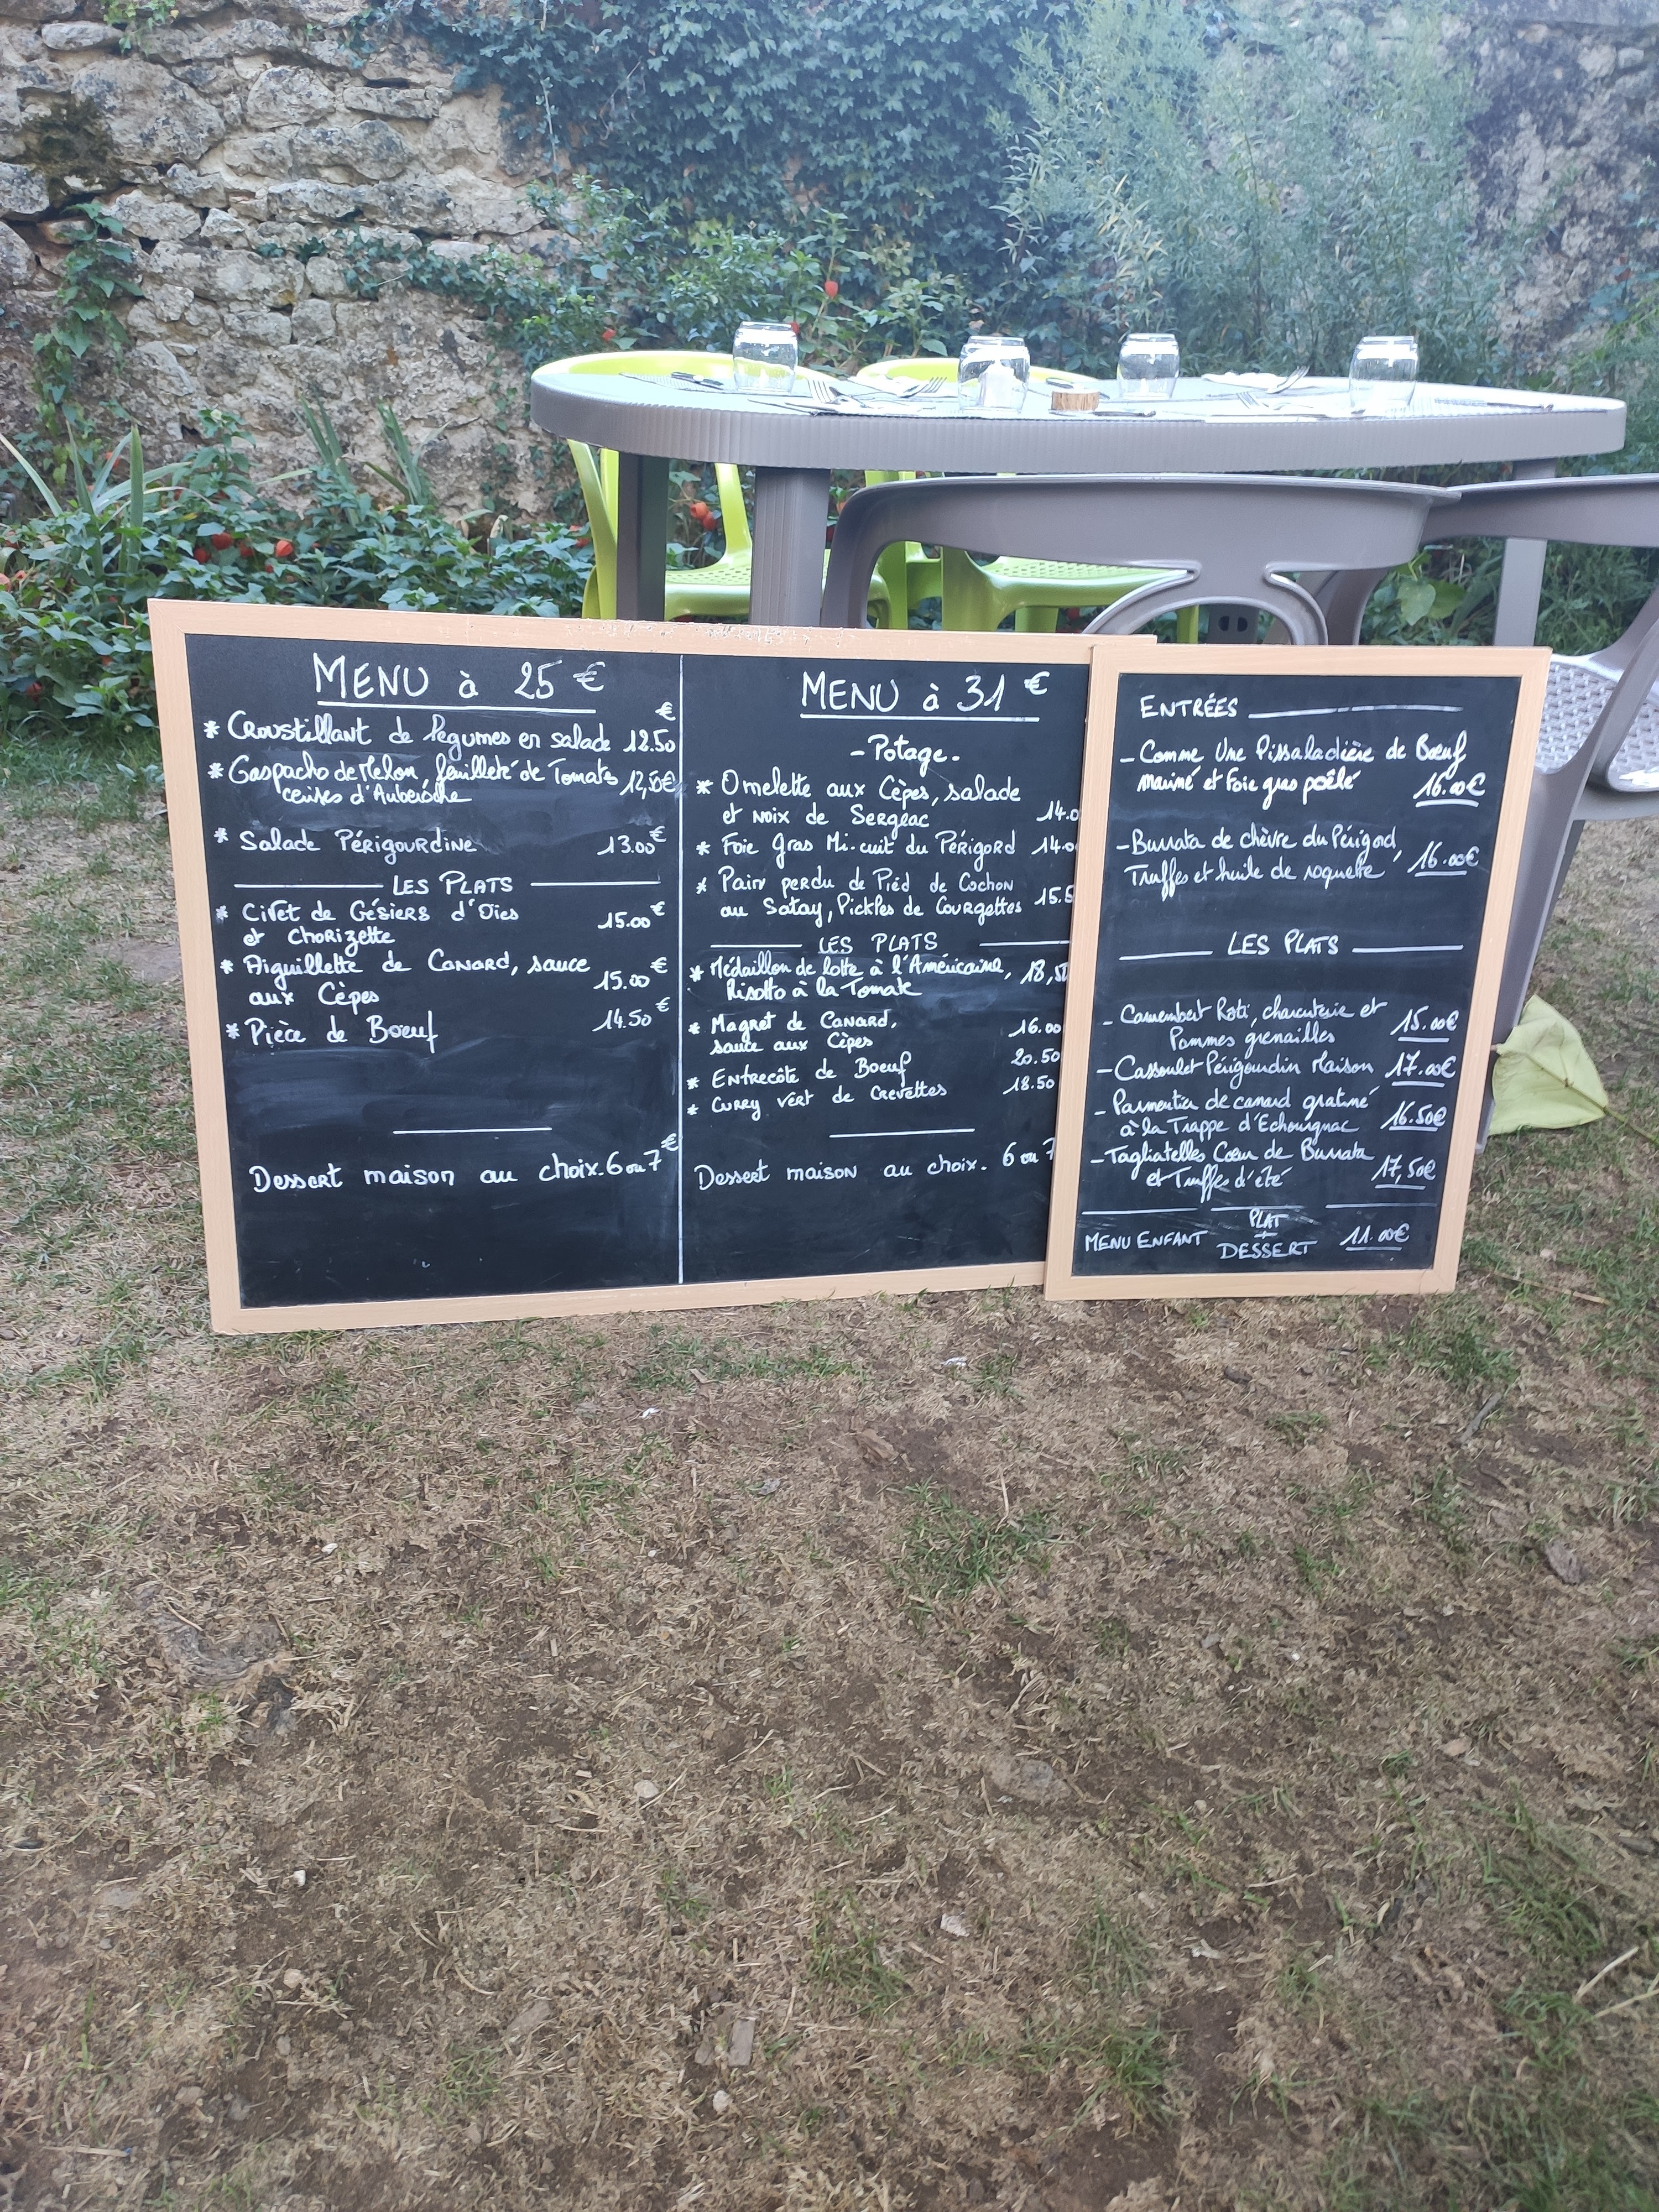 MENU à 25 €
€
* Croustillant de légumes en salade 12.50
* Gaspacho de Melon, feuilleté de Tomates 12,50€
cerises d'Auberoche
* Salade Périgourdine 13.00€
LES PLATS
* Civet de Gésiers d'Oies
et Chorizette 15.00€
* Aiguillette de Canard, sauce
aux Cèpes 15.00€
* Pièce de Boeuf 14.50€
Dessert maison au choix. 6 ou 7€
MENU à 31 €
- Potage -
* Omelette aux Cèpes, salade
et noix de Sergeac 14.0
* Foie Gras Mi-cuit du Périgord 14.0
* Pain perdu de Pied de Cochon
au Satay, Pickles de Courgettes 15.5
LES PLATS
* Médaillon de lotte à l'Américaine, 18,5
Risotto à la Tomate
* Magret de Canard,
sauce aux Cèpes 16.00
* Entrecôte de Boeuf 20.50
* Curry vert de Crevettes 18.50
Dessert maison au choix. 6 ou 7
ENTRÉES
- Comme Une Pissaladière de Bœuf
mariné et Foie gras poêlé 16.00€
- Burrata de chèvre du Périgord,
Truffes et huile de roquette 16.00€
LES PLATS
- Camembert Roti, charcuterie et
Pommes grenailles 15.00€
- Cassoulet Périgourdin Maison 17.00€
- Parmentier de canard gratiné
à la Trappe d'Echourgnac 16.50€
- Tagliatelles Cœur de Burrata
et Truffes d'été 17,50€
MENU ENFANT PLAT + DESSERT 11.00€